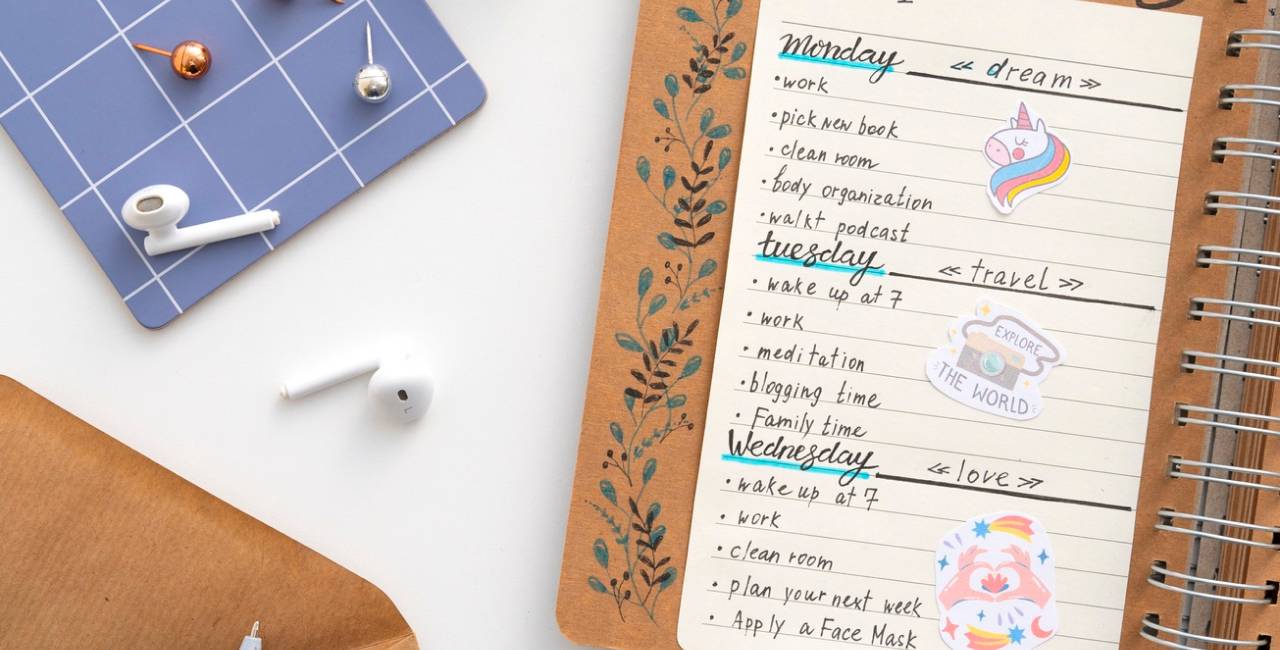 monday « dream »
• work
• pick new book
• clean room
• body organization
• walkt podcast
tuesday « travel »
• wake up at 7
• work
EXPLORE
• meditation
THE WORLD
• blogging time
• Family time
Wednesday « love »
• wake up at 7
• work
• clean room
• plan your next week
• Apply a Face Mask